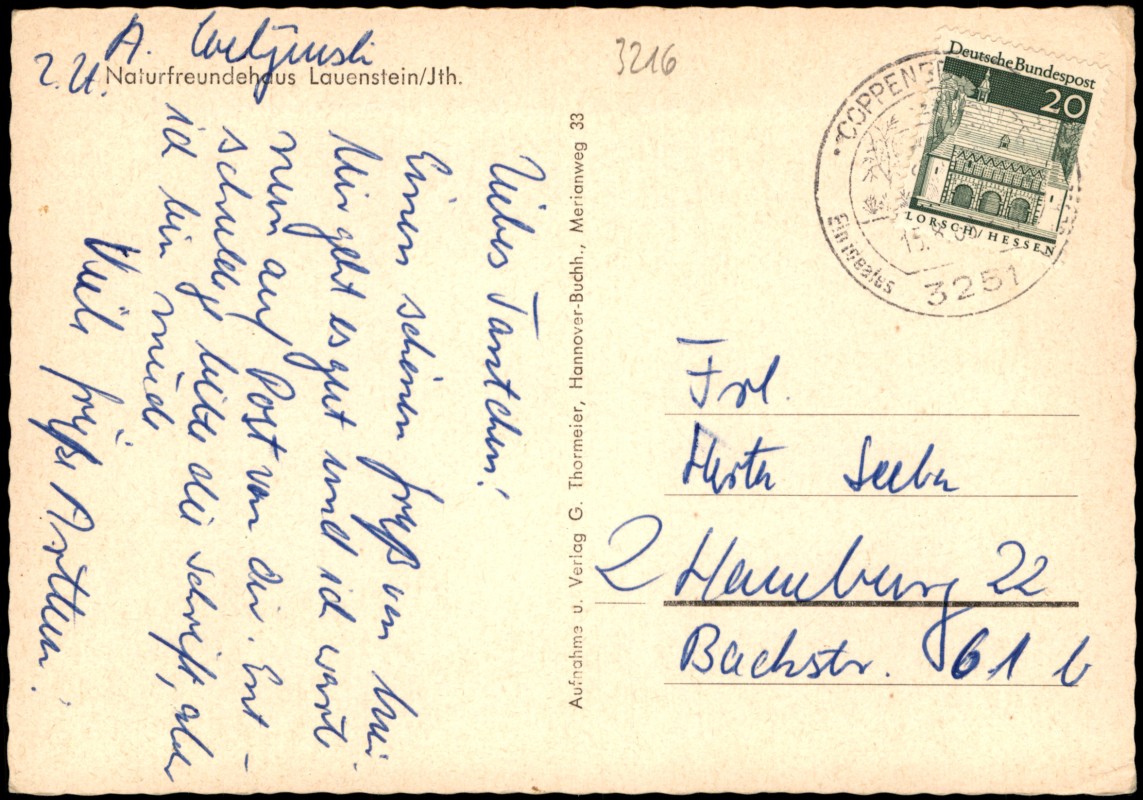 A.
z. Zt. Naturfreundehaus Lauenstein/Jth.
3216
Liebes Tantchen!
Einen schönen Gruß von hier.
Mir geht es gut und ich warte
nun auf Post von dir. Ent-
schuldige bitte die Schrift, aber
ich bin müde
Viele Grüße
Aufnahme u. Verlag G. Thormeier, Hannover-Buchh., Merianweg 33
Deutsche Bundespost
20
LORSCH / HESSEN
COPPENB
Ein ideales
3251
Frl.
Herta Seeba
2 Hamburg 22
Bachstr. 61 b